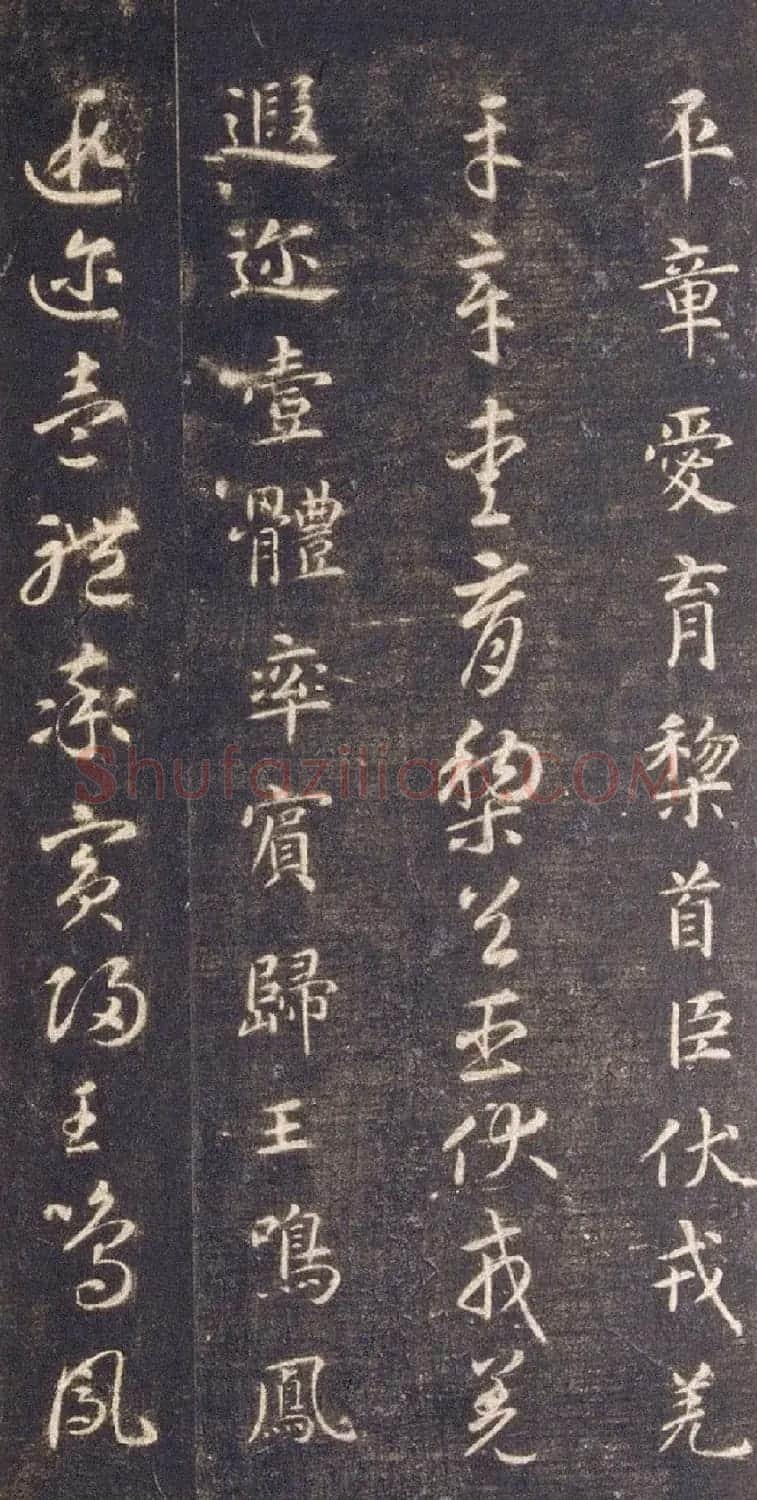 平章愛育黎首臣伏戎羌
平章愛育黎首臣伏戎羌
遐迩壹體率賓歸王鳴鳳
遐迩壹體率賓歸王鳴鳳
Shufaziliao.COM